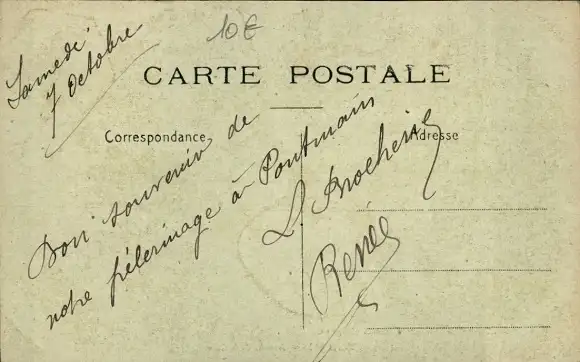 Samedi
7 Octobre
10€
CARTE POSTALE
Correspondance
Adresse
Bon souvenir de
notre pélerinage à Pontmain
L Brocherie
Renée